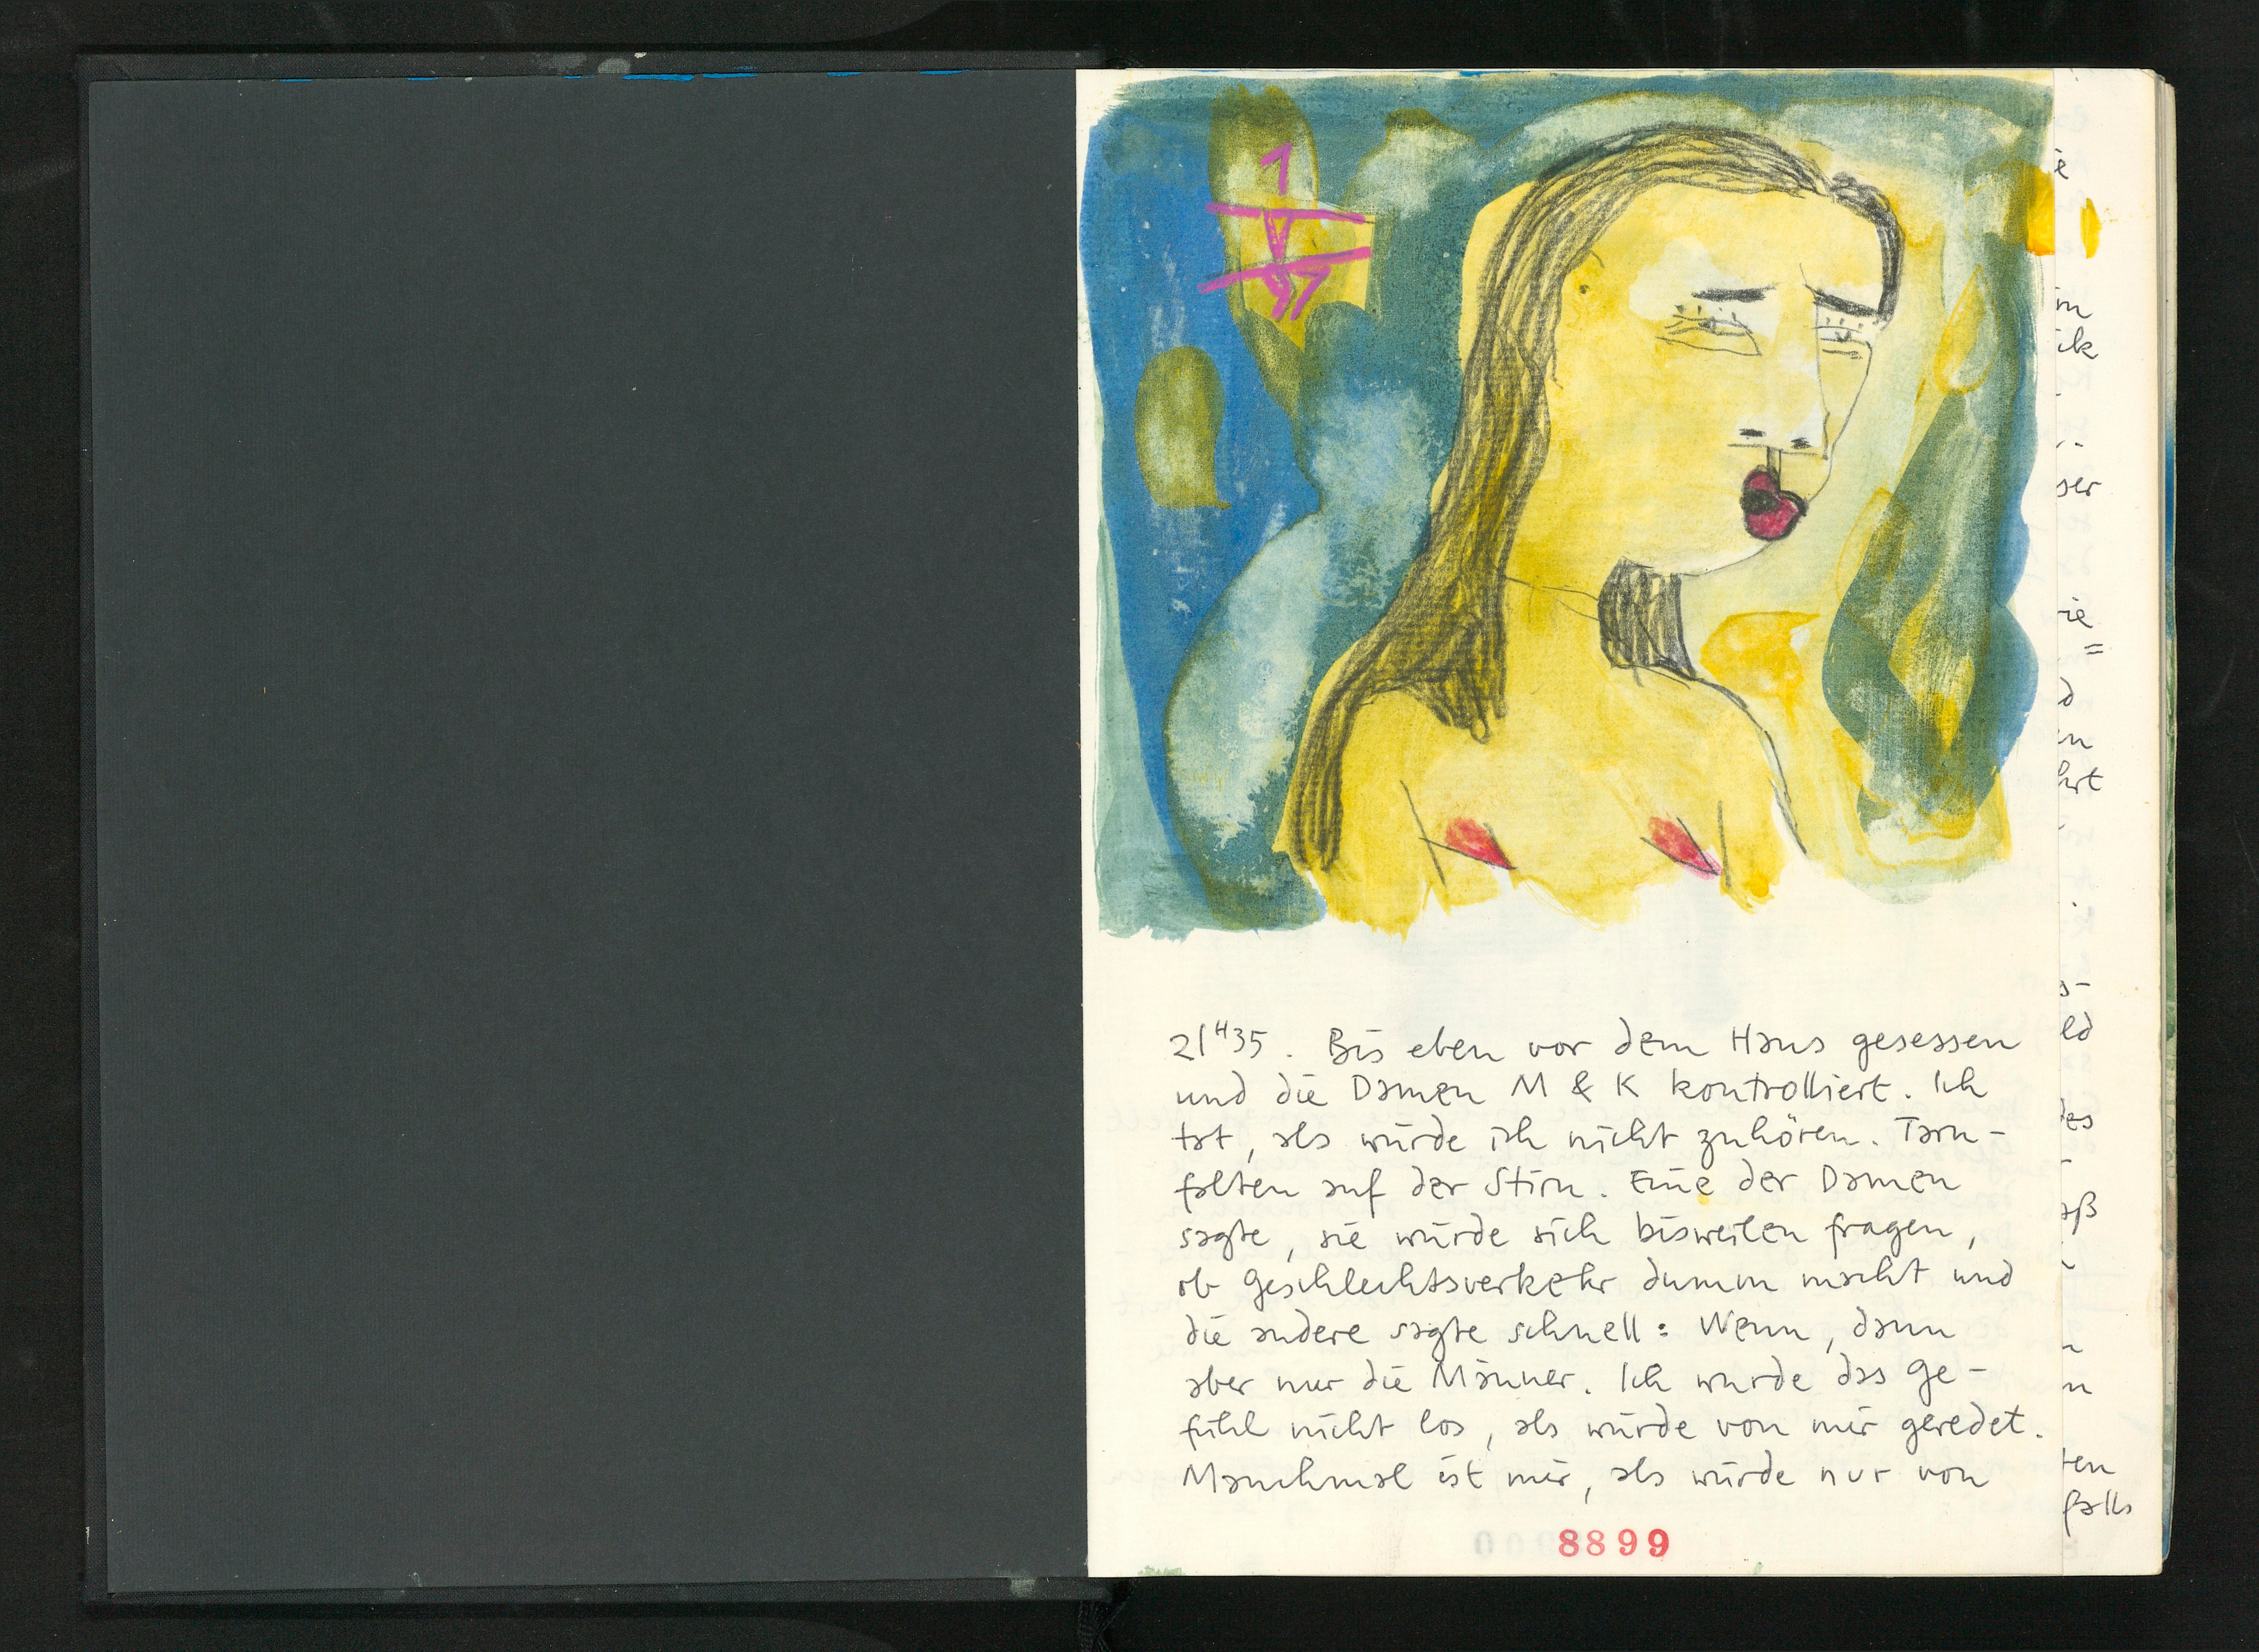 1
V
97
21H35. Bis eben vor dem Haus gesessen
und die Damen M & K kontrolliert. Ich
tat, als würde ich nicht zuhören. Tarn-
falten auf der Stirn. Eine der Damen
sagte, sie würde sich bisweilen fragen,
ob Geschlechtsverkehr dumm macht und
die andere sagte schnell: Wenn, dann
aber nur die Männer. Ich wurde das Ge-
fühl nicht los, als würde von mir geredet.
Manchmal ist mir, als würde nur von
8899
ie
m
ik
ser
ie
d
en
hrt
s-
ld
des
aß
n
n
ten
falls